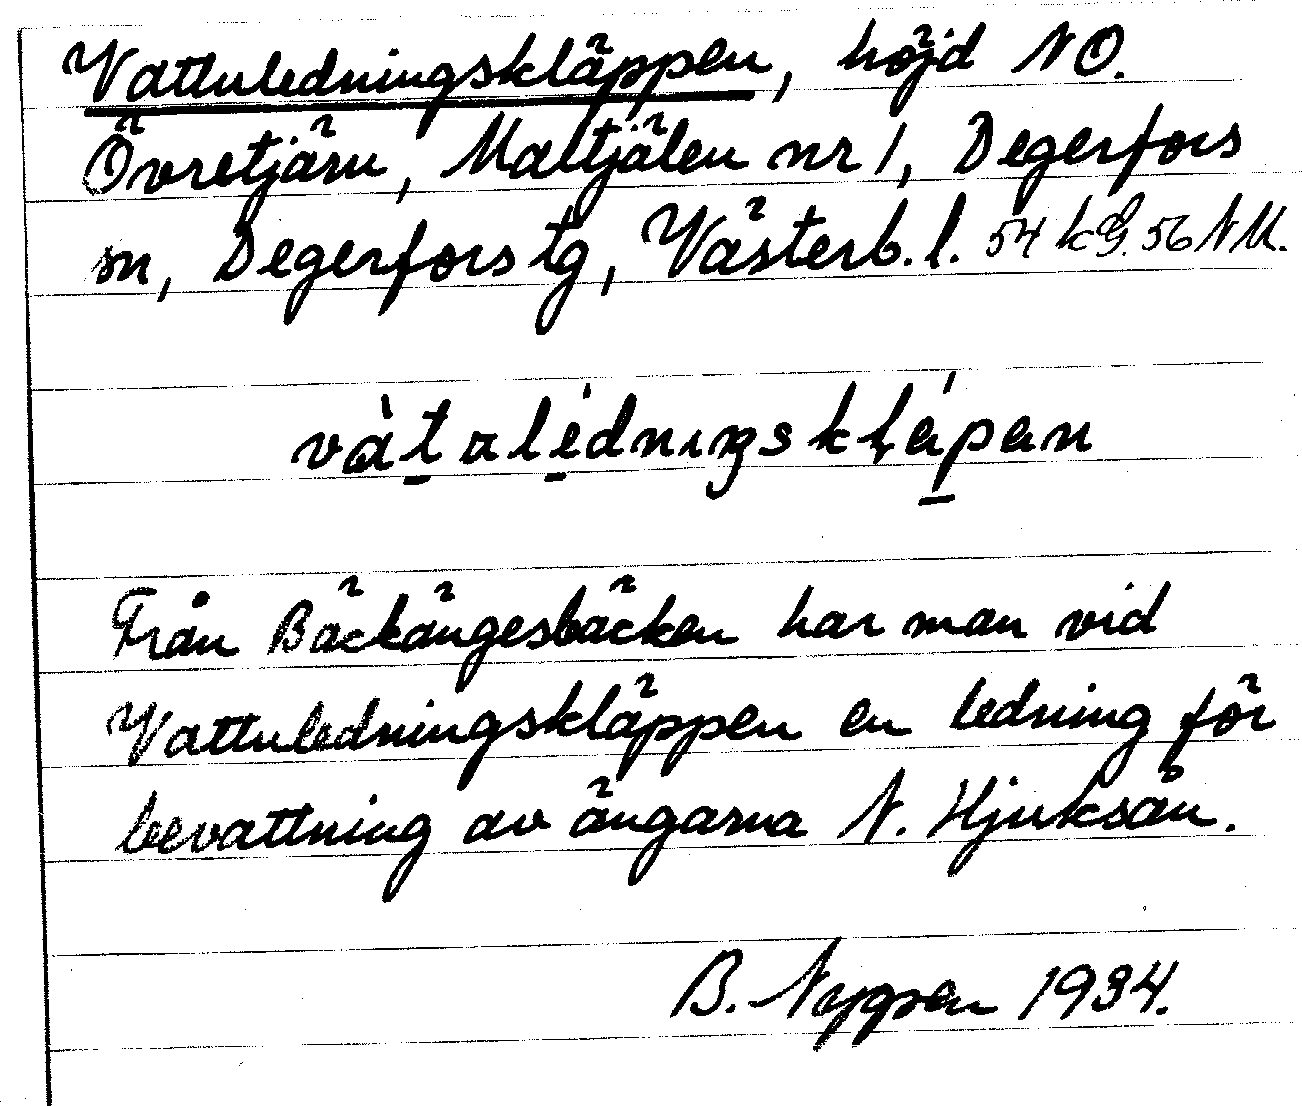 Vattuledningskläppen, höjd NO.
Övretjärn, Maltjälen nr 1, Degerfors
sn, Degerfors tg, Västerb. l. 54 kG. 56 NM.
vàtalédniŋskḷápan
Från Bäckängesbäcken har man vid
Vattuledningskläppen en ledning för
bevattning av ängarna N. Hjuksån.
B. 1934.